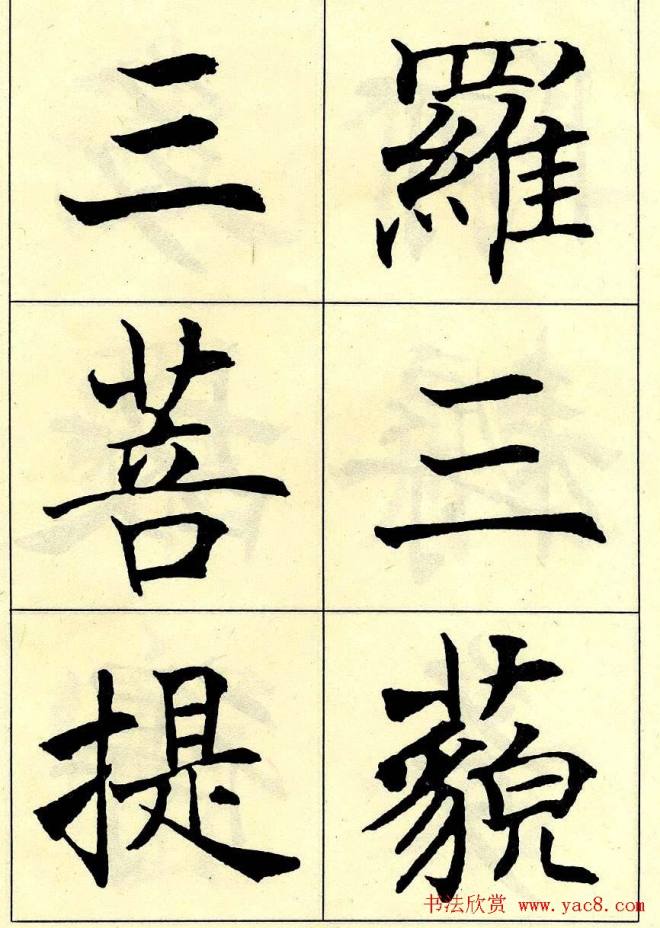 羅三藐
三菩提
书法欣赏 www.yac8.com